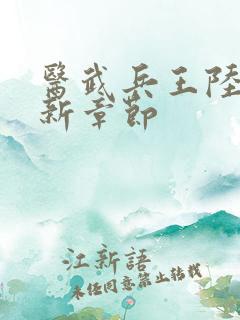 醫武兵王陸
新章節
江新語
未任同意禁止转载